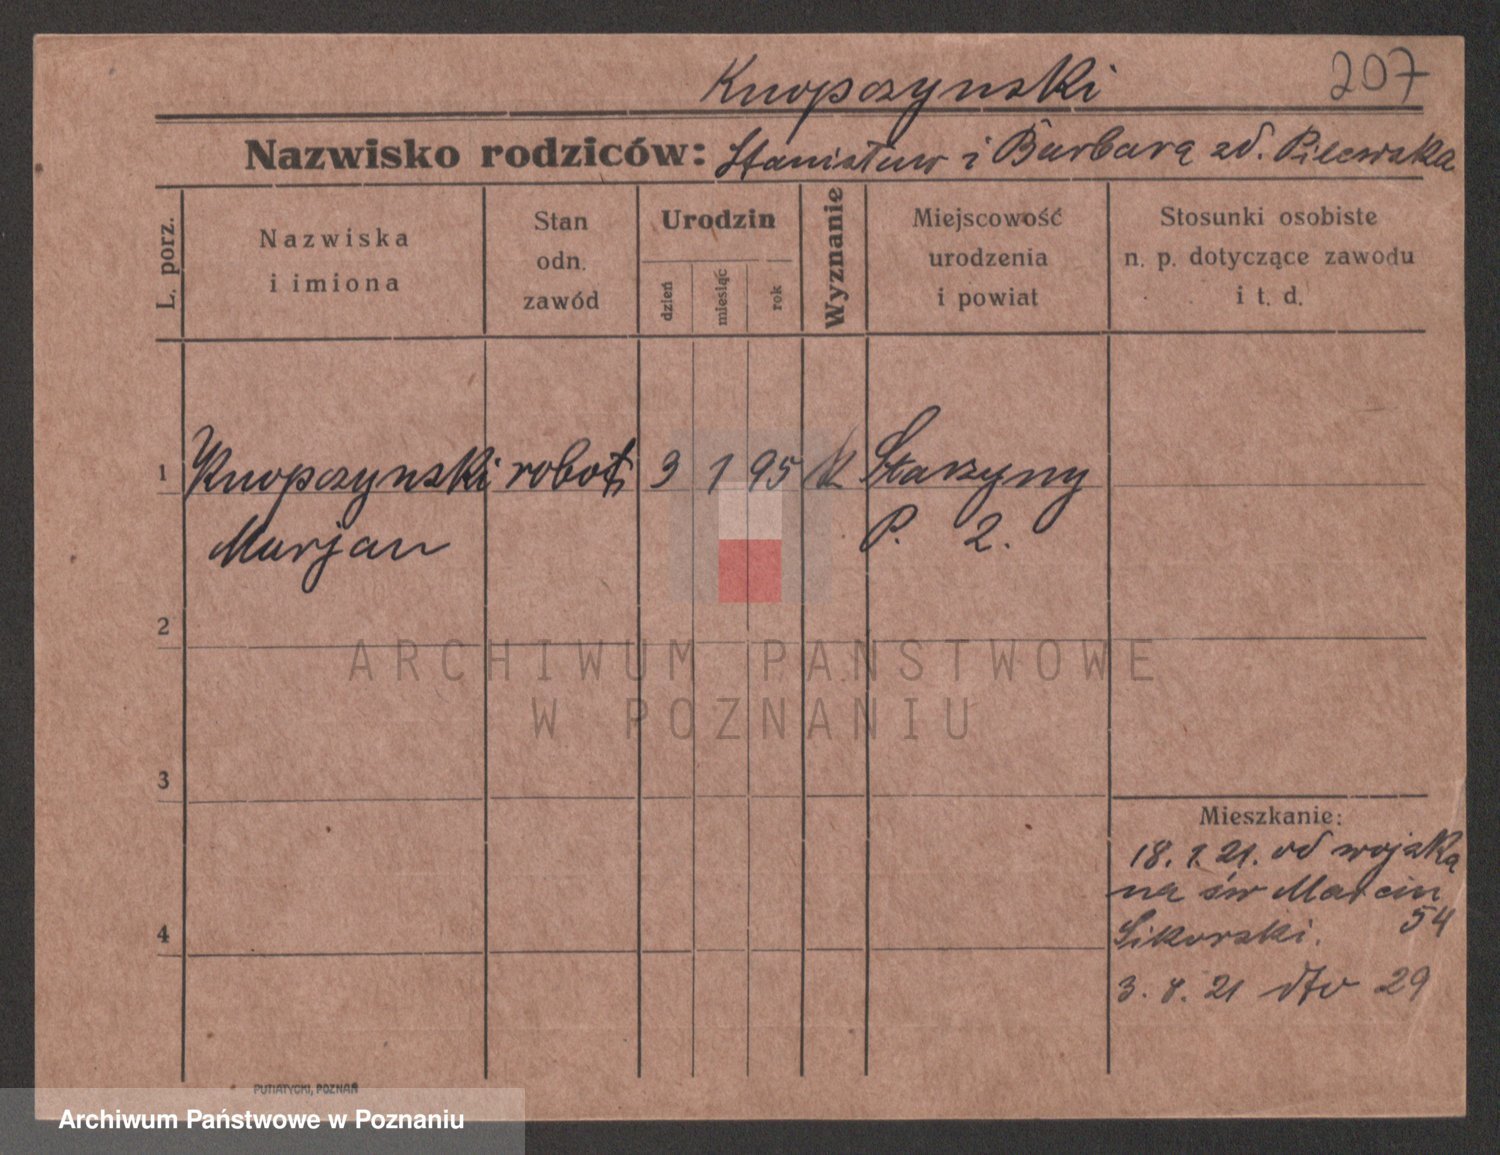 Knopczynski 207
Nazwisko rodziców: Stanisław i Barbara zd. Pilewska
L. porz.
Nazwiska
i imiona
Stan
odn.
zawód
Urodzin
dzień
miesiąc
rok
Wyznanie
Miejscowość
urodzenia
i powiat
Stosunki osobiste
n. p. dotyczące zawodu
i t. d.
1 Knopczynski robot. 3 1 95 K Starzyny
Marjan P. 2.
2
3
4
Mieszkanie:
18. 1. 21. od wojska
na św Marcin
54
Sikorski.
3. 8. 21 dto 29
PUTIATYCKI, POZNAŃ
ARCHIWUM PAŃSTWOWE
W POZNANIU
Archiwum Państwowe w Poznaniu